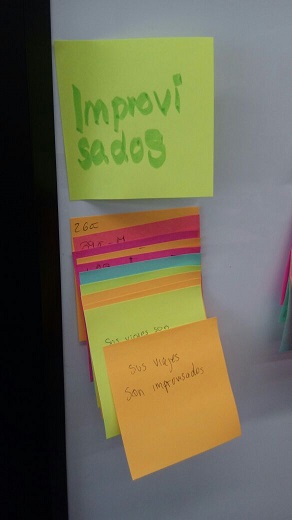 Improvi
sados
Sus viajes son
Sus viajes
Son improvisados